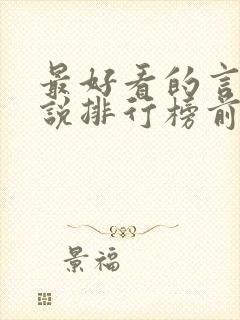 最好看的言
說排行榜前
景福